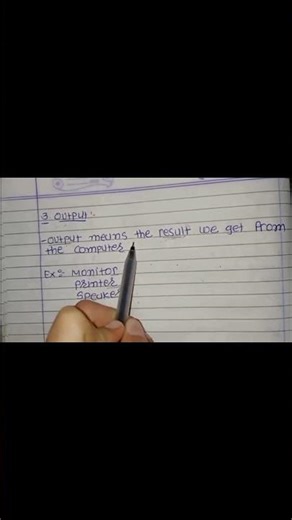 3. Output:-
- Output means the result we get from
the computer
Ex:- Monitor
Printer
Speaker